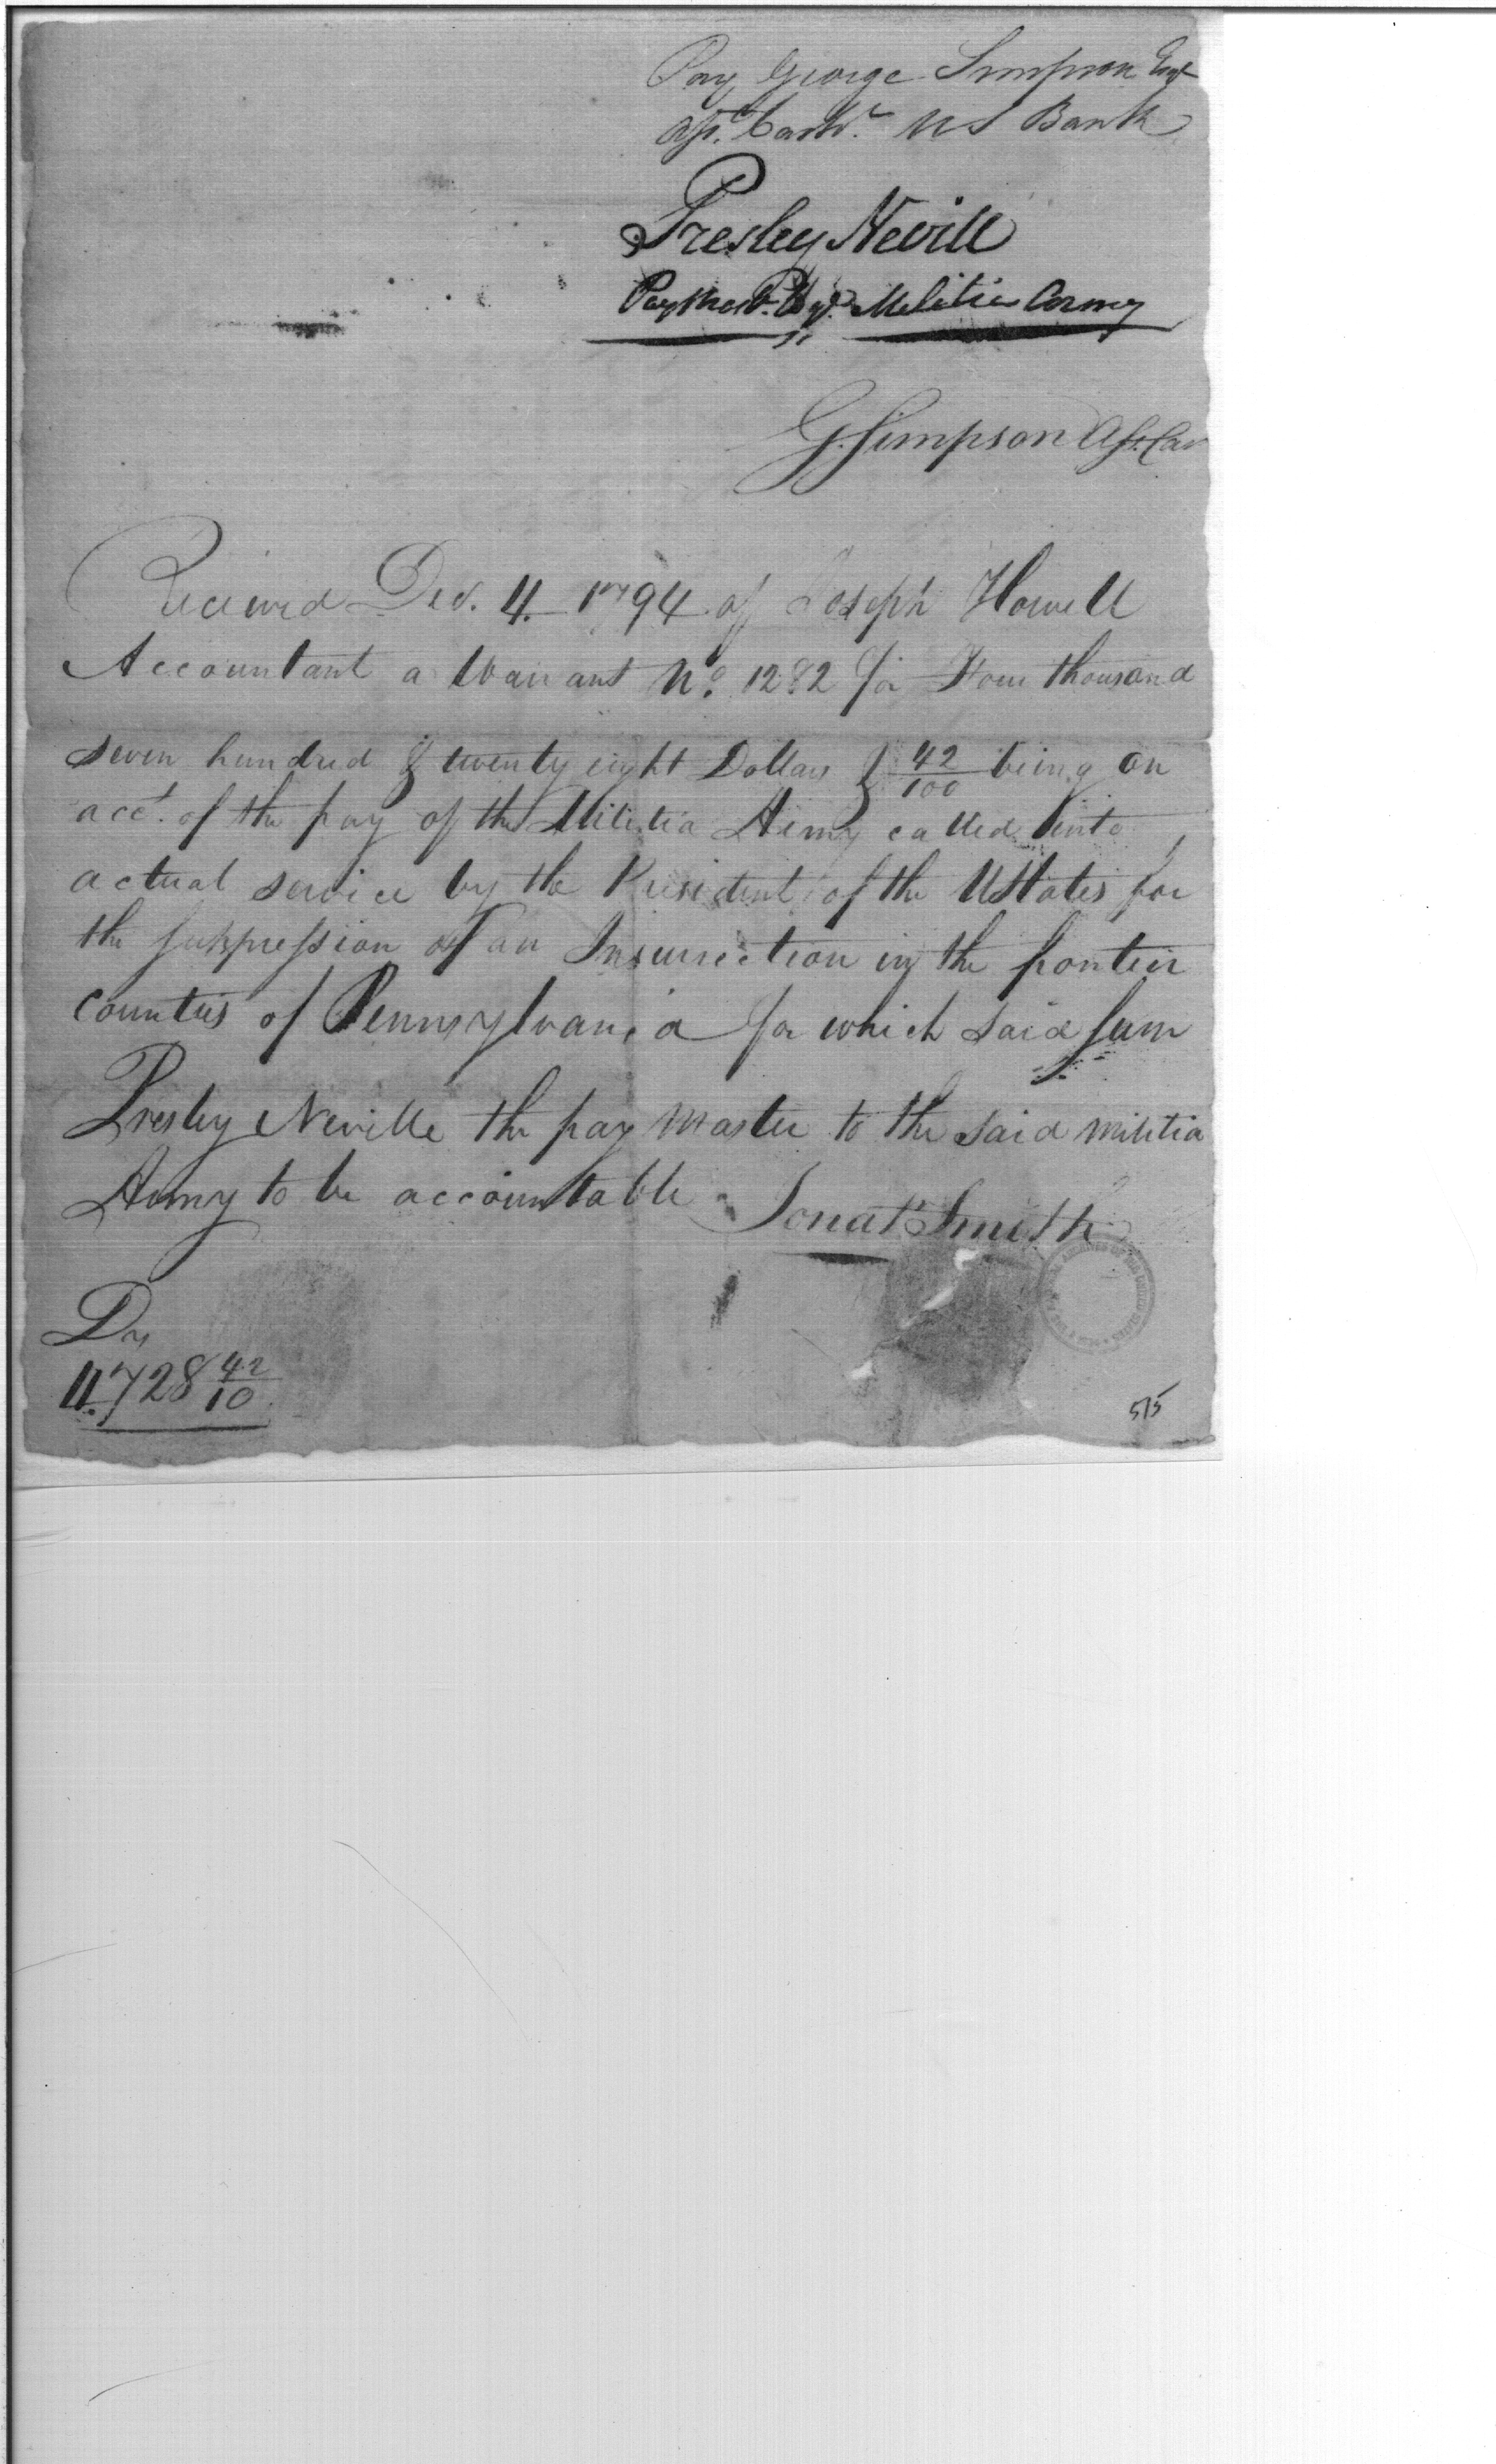 Pay George Simpson Esqr
Asst. Cashr. US Bank
Presley Nevill
Paymastr. Militia Army
G. Simpson Asst. Cas
Received Dec. 4. 1794 of Joseph Howell
Accountant a Warrant No. 1282 for Four thousand
seven hundred & twenty eight Dollars & 42/100 being on
acct. of the pay of the Militia Army called into
actual service by the President of the UStates for
the suppression of an Insurrection in the frontier
counties of Pennsylvania for which said sum
Presley Neville the pay master to the said militia
Army to be accountable
Jonat Smith
Dr
4.728 42/10
515